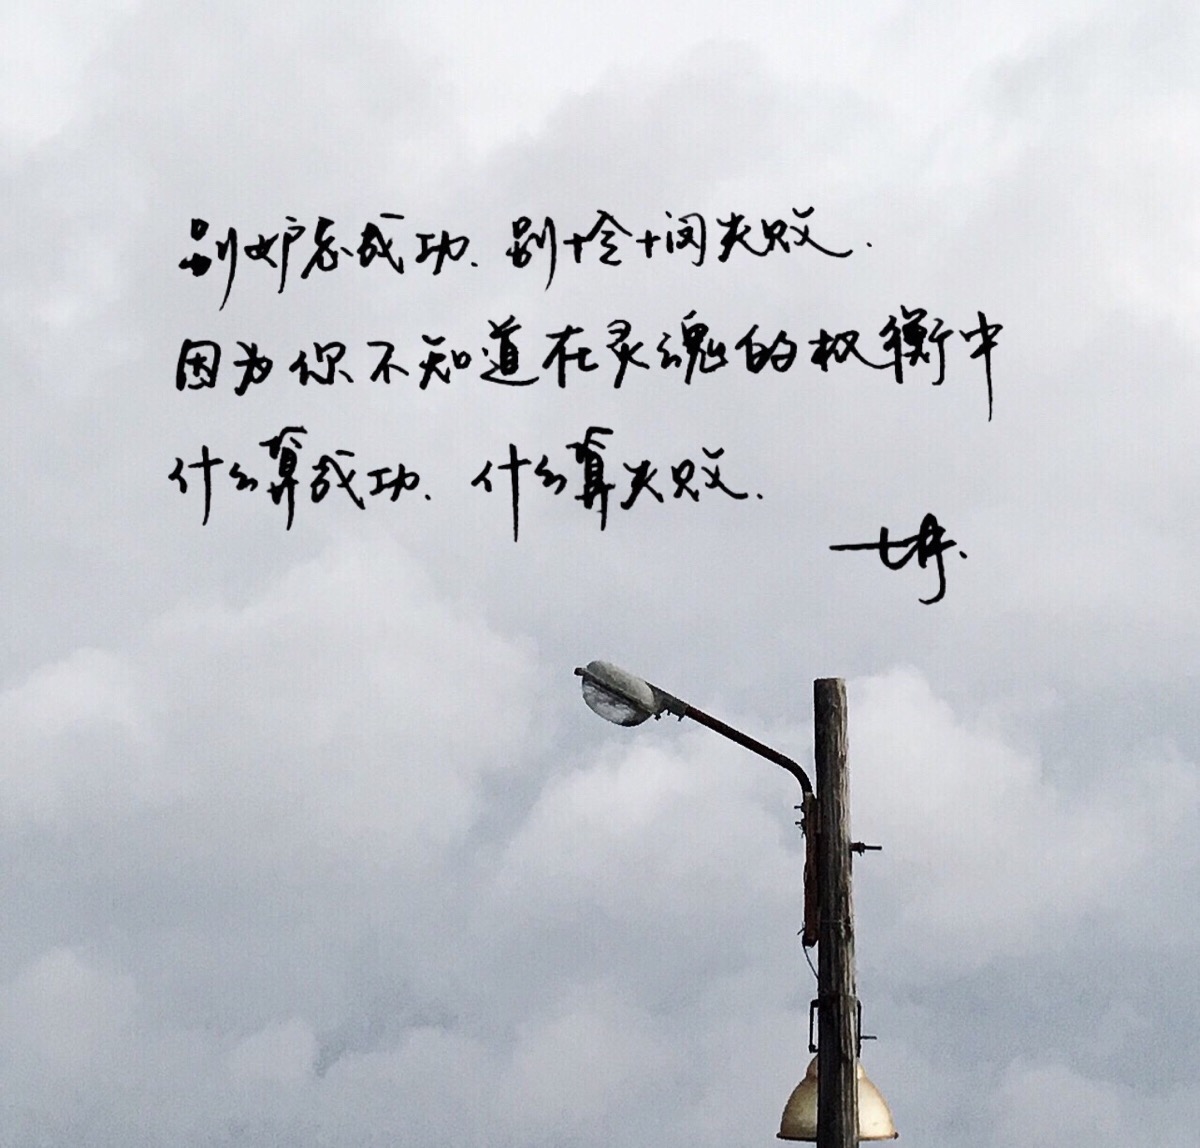 别妒忌成功、别怜悯失败.
因为你不知道在灵魂的权衡中
什么算成功、什么算失败.
七井.